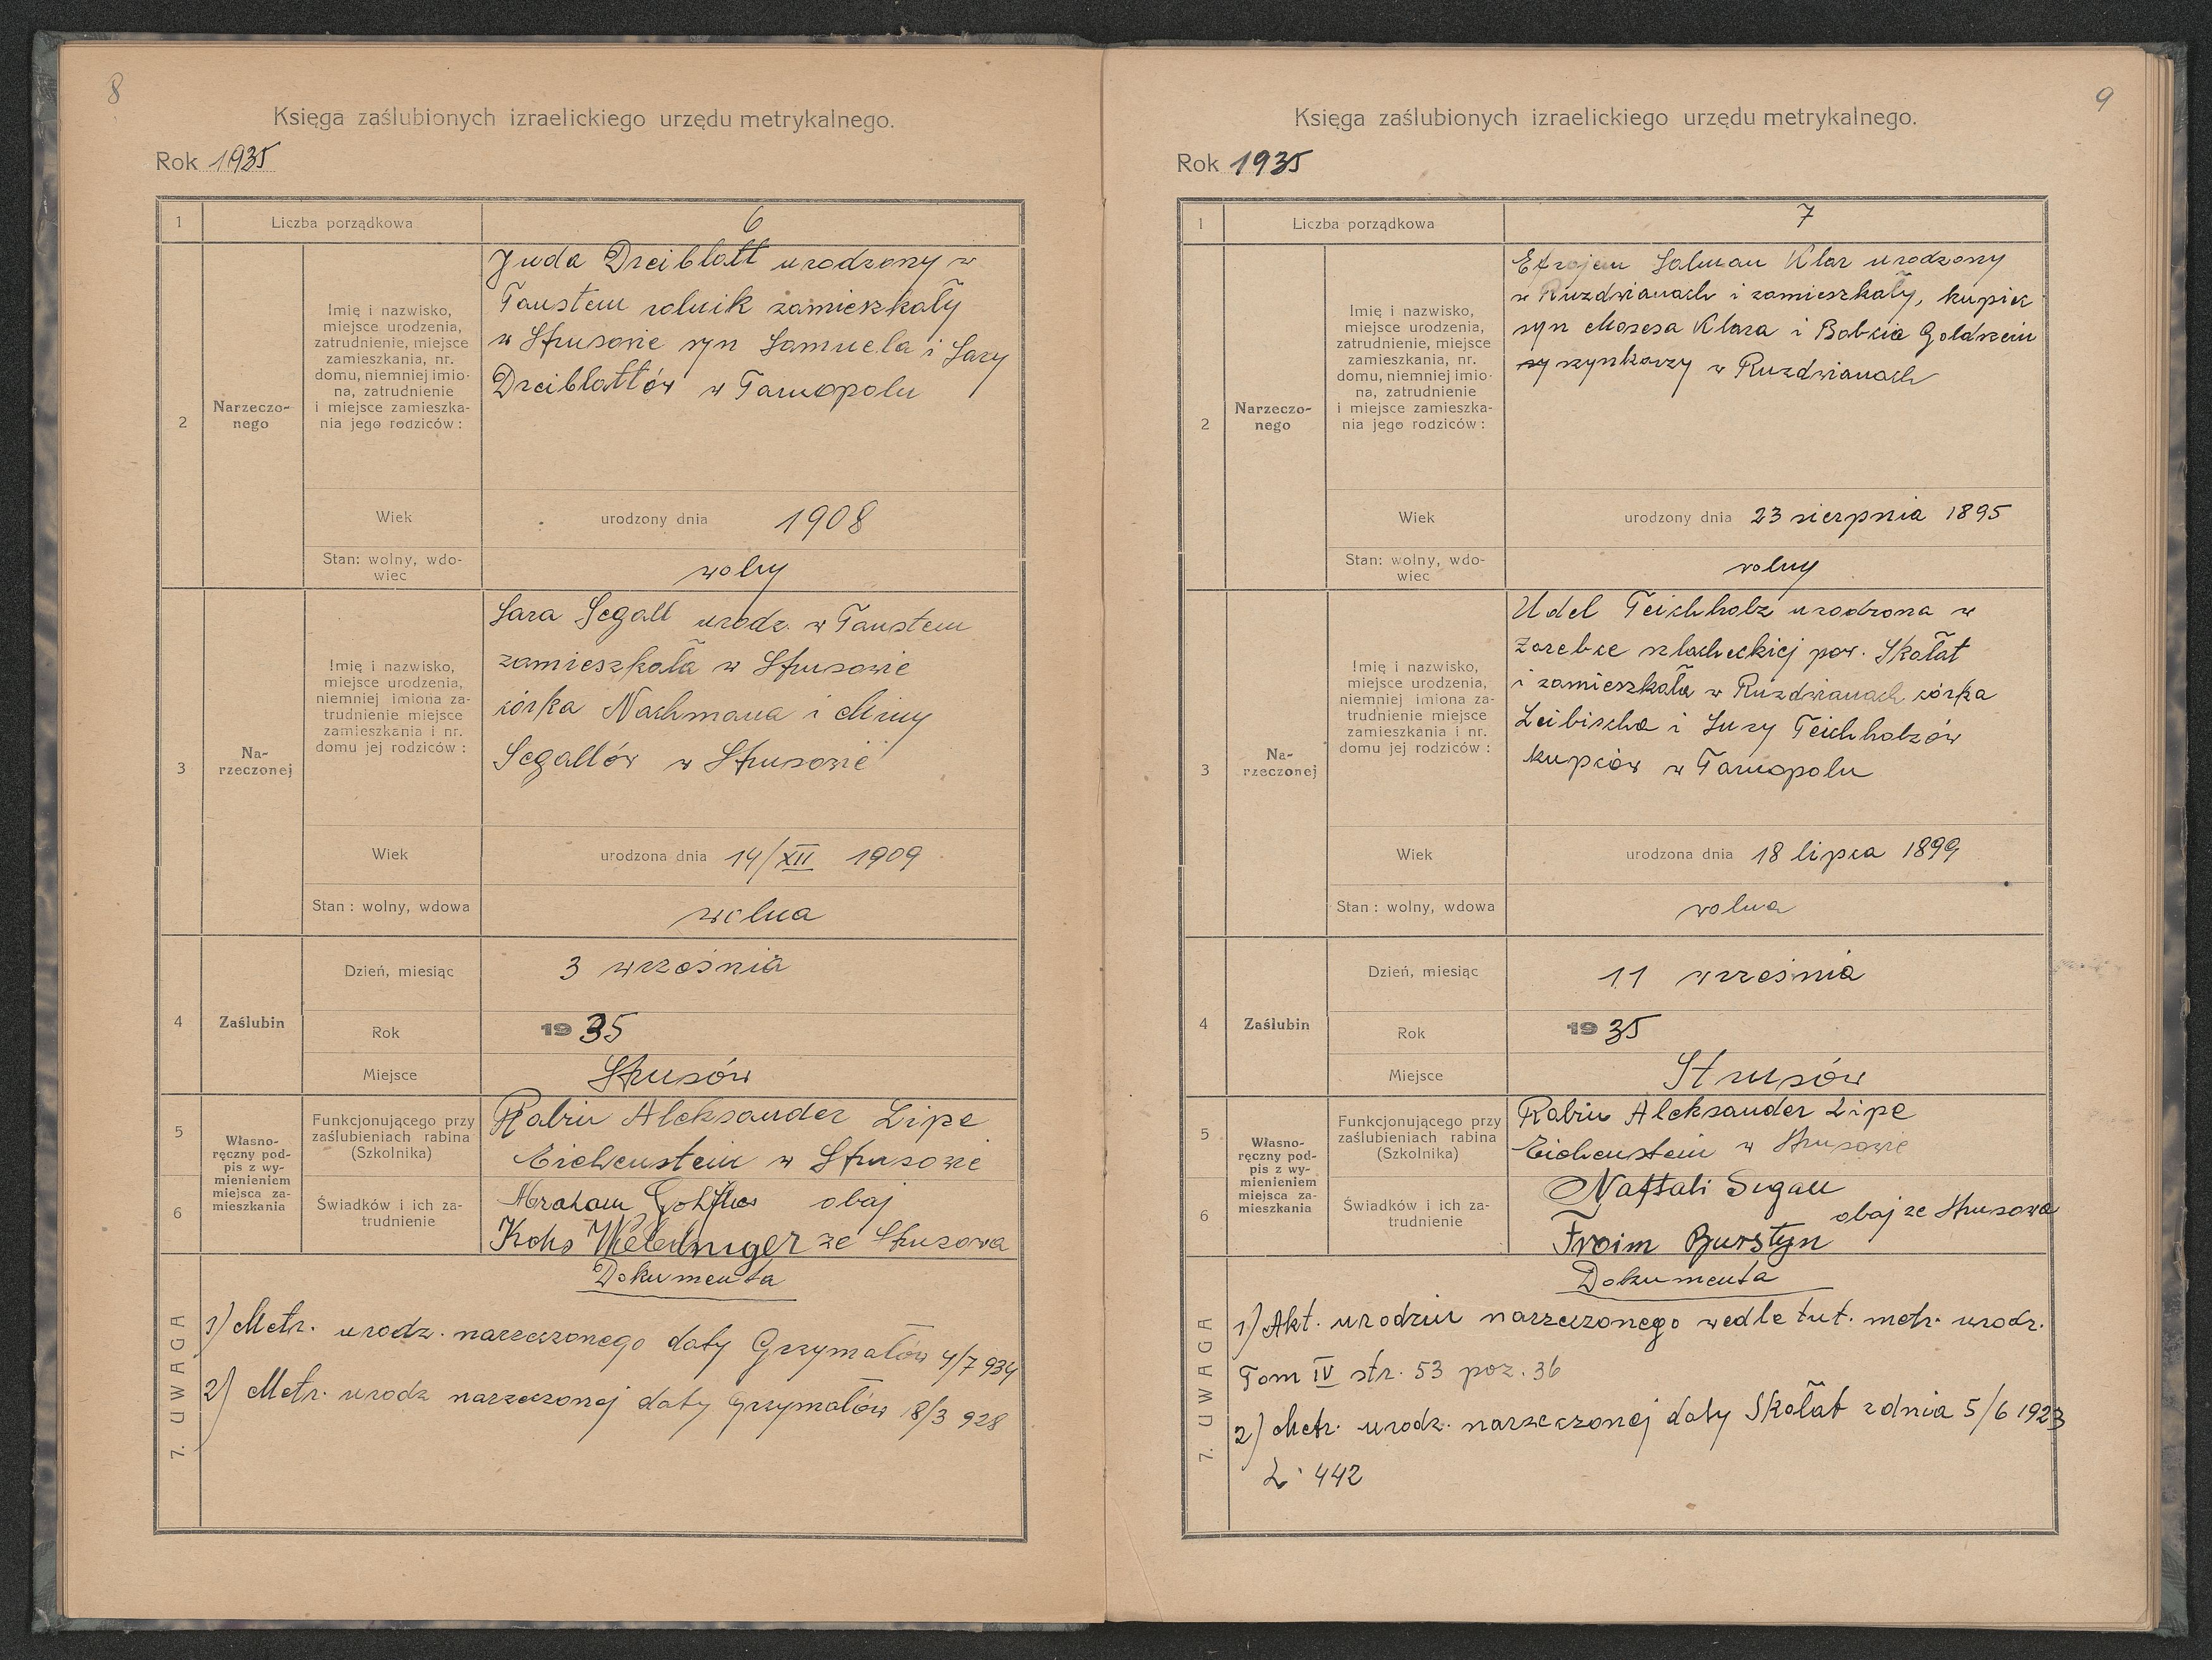 8
Księga zaślubionych izraelickiego urzędu metrykalnego.
Rok 1935
1
Liczba porządkowa
6
2
Narzeczo-
nego
Imię i nazwisko,
miejsce urodzenia,
zatrudnienie, miejsce
zamieszkania, nr.
domu, niemniej imio-
na, zatrudnienie
i miejsce zamieszka-
nia jego rodziców :
Juda Dreiblatt urodzony w
Toustem rolnik zamieszkały
w Strusowie syn Samuela i Sary
Dreiblattów w Tarnopolu
Wiek
urodzony dnia 1908
Stan: wolny, wdo-
wiec
wolny
3
Na-
rzeczonej
Imię i nazwisko,
miejsce urodzenia,
niemniej imiona za-
trudnienie miejsce
zamieszkania i nr.
domu jej rodziców :
Sara Segall urodz. w Toustem
zamieszkała w Strusowie
córka Nachmana i Miny
Segallów w Strusowie
Wiek
urodzona dnia 14/XII 1909
Stan : wolny, wdowa
wolna
4
Zaślubin
Dzień, miesiąc
3 września
Rok
1935
Miejsce
Strusów
5
Własno-
ręczny pod-
pis z wy-
mienieniem
miejsca za-
mieszkania
Funkcjonującego przy
zaślubieniach rabina
(Szkolnika)
Rabin Aleksander Lipe
Eichenstein w Strusowie
6
Świadków i ich za-
trudnienie
Abraham obaj
ze Strusowa
7. UWAGA
Dokumenta
1) Metr. urodz. narzeczonego daty Grzymałów 4/7 934
2) Metr. urodz narzeczonej daty Grzymałów 18/3 928
9
Księga zaślubionych izraelickiego urzędu metrykalnego.
Rok 1935
1
Liczba porządkowa
7
2
Narzeczo-
nego
Imię i nazwisko,
miejsce urodzenia,
zatrudnienie, miejsce
zamieszkania, nr.
domu, niemniej imio-
na, zatrudnienie
i miejsce zamieszka-
nia jego rodziców :
Efrojem Salman Klar urodzony
w Ruzdwianach i zamieszkały, kupiec
syn Mosesa Klara i Babcia Goldstein
szynkarzy w Ruzdwianach
Wiek
urodzony dnia 23 sierpnia 1895
Stan: wolny, wdo-
wiec
wolny
3
Na-
rzeczonej
Imię i nazwisko,
miejsce urodzenia,
niemniej imiona za-
trudnienie miejsce
zamieszkania i nr.
domu jej rodziców :
Udel Teichholz urodzona w
Zarebce szlacheckiej pow. Skałat
i zamieszkała w Ruzdwianach córka
Leibischa i Sury Teichholzów
kupców w Tarnopolu
Wiek
urodzona dnia 18 lipca 1899
Stan : wolny, wdowa
wolna
4
Zaślubin
Dzień, miesiąc
11 września
Rok
1935
Miejsce
Strusów
5
Własno-
ręczny pod-
pis z wy-
mienieniem
miejsca za-
mieszkania
Funkcjonującego przy
zaślubieniach rabina
(Szkolnika)
Rabin Aleksander Lipe
Eichenstein w Strusowie
6
Świadków i ich za-
trudnienie
Naftali Segall
obaj ze Strusowa
Froim Burstyn
7. UWAGA
Dokumenta
1) Akt. urodzin narzeczonego wedle tut. metr. urodz.
Tom IV str. 53 poz. 36
2) Metr. urodz. narzeczonej daty Skałat z dnia 5/6 1923
L. 442